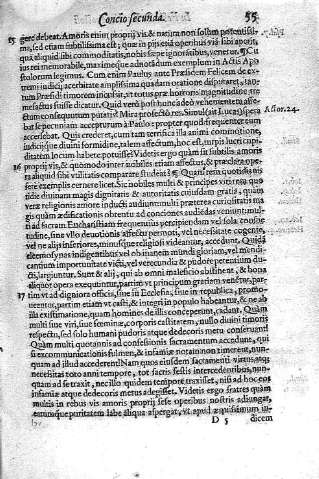 Concio secunda. 55
15 gere debeat. Amoris enim proprij vis & natura non solùm potentissi-
ma, sed etiam subtilissima est; quæ in pijs etiã operibus vis sibi aperit,
qua aliquid sibi commoditatis, nobis sæpe ignorãtibus, venetur. ¶ Cu
ius rei memorabile, maximeque admotãdum exemplum in Actis Apo
stolorum legimus. Cum enim Paulus ante Præsidem Felicem de ex-
tremi iudicij acerbitate amplissima quadam oratione disputaret,
tum Præsidi timorem incussit, vt totus præ horroris magnitudine
mefactus fuisse dicatur. Quid verò post hunc adeò vehementem affe-
ctum consequutum putatis? Mira profectò res. Simul (ait Lucas) spera
bat se pecuniam accepturum à Paulo: propter quod frequenter eum
Actor. 24.
accersebat. Quis crederet, cum tam terrifica illa animi commotione,
iudicijque diuini formidine, talem affectum, hoc est, turpis lucri cupi-
ditatem locum habere potuisse? Videtis ergo quàm sit subtilis amoris
16 proprij vis, & quomodo inter nobiles etiam affectus, & præclara ope-
ra aliquid sibi vtilitatis comparare studeat? ¶ Quam rem quotidianis
ferè exemplis cernere licet. Sic nobiles multi & principes viri
dic diuinam magis dignitatis & autoritatis cuiusdam gratia; quàm
veræ religionis amore inducti audiunt: multi præterea curiositatis ma
gis quàm ædificationis obtentu ad conciones audiendas veniunt: mul-
ti ad sacram Eucharistiam frequenter percipiendam vel sola consue-
tudine, sine vllo deuotionis affectu permoti, vel necessitate cogente,
vel ne alijs inferiores, minusque religiosi videantur, accedunt. Quid
eleemosynas indigentibus vel ob inanem mundi gloriam, vel mendi-
cantium importunitate victi, vel verecundia & pudore petentium du-
cti, largiuntur. Sunt & alij, qui ab omni maleficio abstinent, & bona
aliquot opera exequuntur, partim vt principum gratiam venetur, par-
17 tim vt ad dignioris officij, siue in Ecclesia, siue in republica, promo-
ueantur, partim etiam vt casti, & integri in populo habeantur, & ne ab
illa existimatione, quam homines de illis conceperunt, cadant. Quàm
multi siue viri, siue fœminæ, corporis castitatem, nullo diuini timoris
respectu, sed solo humani pudoris atque dedecoris metu conseruant?
Quàm multi quotannis ad confessionis sacramentum accedunt, qui
si excommunicationis fulmen, & infamiæ notam non timerent, nun-
quam ad illud accederent? Nam quos eiusdem sacramenti virtus atque
necessitas toto anni tempore, tot sacris festis intercedentibus, nun-
quam ad se traxit, nec illo quidem tempore traxisset, nisi ad hoc eos
infamiæ atque dedecoris metus adegisset. Videtis ergo fratres quàm
multis in rebus vis amoris proprij sese operibus nostris adiungat,
eorumque puritatem labe aliqua aspergat, vt apud æquissimum iu-
D 5 dicem